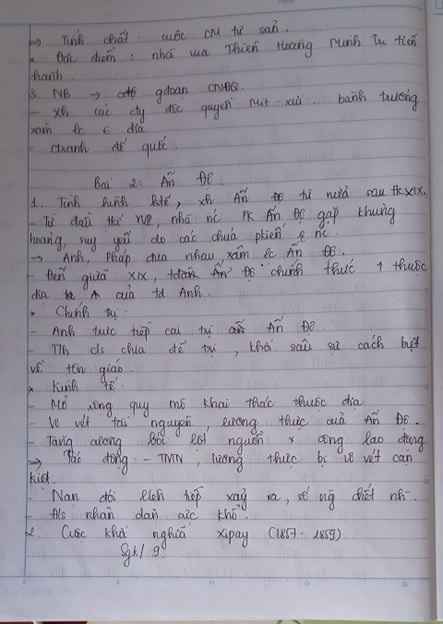 => Tính chất: cuộc CM tư sản.
* Đặc điểm: nhà vua Thiên Hoàng Minh Trị tiến
hành.
3. NB -> gđoạn CNĐQ.
- Xh các cty độc quyền Mit xưi.. bành trướng
xâm lc t địa
- ctranh đế quốc.
Bài 2: Ấn Độ.
1. Tình hình ktế, xh Ấn Độ từ nửa sau tk XIX.
- Từ đầu tkỉ XVII, nhà nc PK Ấn Độ gặp khủng
hoảng, suy yếu do các chúa pkiến nc
-> Anh, Pháp đua nhau, xâm lc Ấn Độ.
- Đến giữa XIX, Ấn Độ chính thức 1 thuộc
địa của td Anh.
* Chính trị
- Anh trực tiếp cai trị Ấn Độ
- Th cs chia để trị, khơi sâu sự cách biệt
về tôn giáo.
* Kinh tế.
- Mở rộng quy mô khai thác thuộc địa
- Vơ vét tài nguyên, lương thực của Ấn Độ.
- Tăng cường bóc lột nguồn n công lao động
-> Tác động - TNTN, lương thực bị vơ vét cạn
kiệt.
- Nạn đói liên tiếp xảy ra, số ng chết nh.
- đs nhân dân cực khổ.
2. Cuộc khởi nghĩa xipay (1857 - 1859)
Sgk/ 9